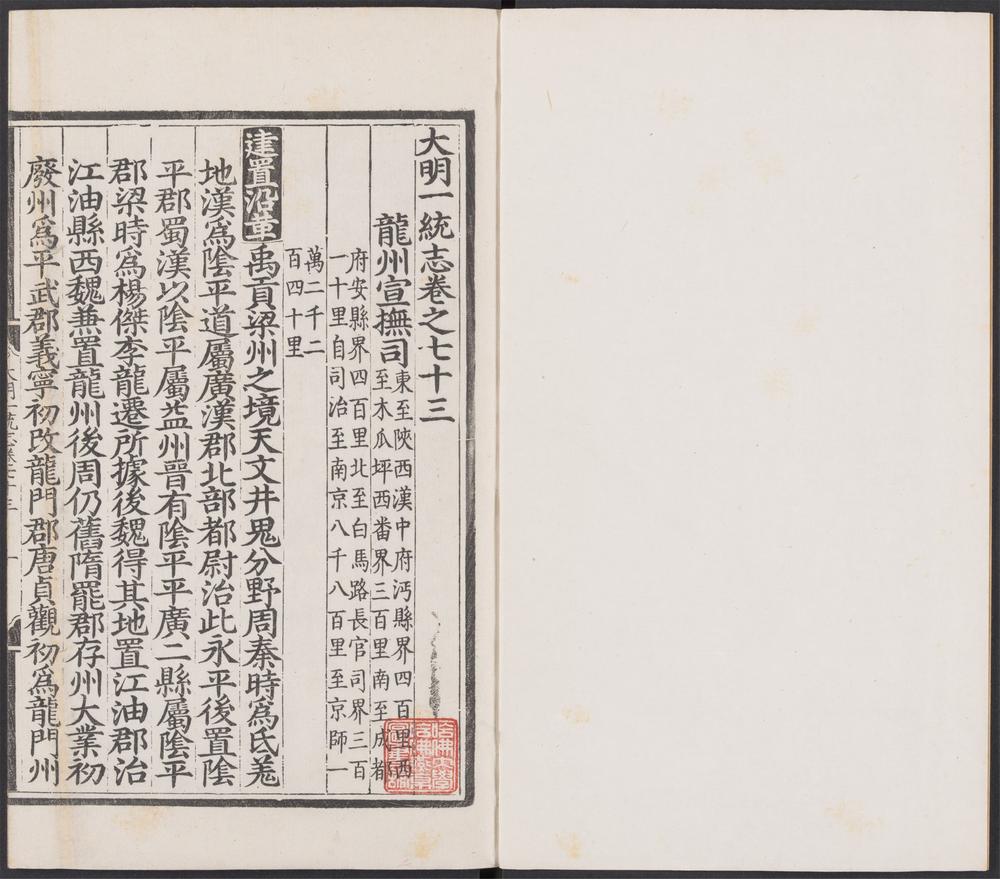 大明一統志卷之七十三
龍州宣撫司
東至陝西漢中府沔縣界四百里西
至木瓜坪西番界三百里南至成都
府安縣界四百里北至白馬路長官司界三百
一十里自司治至南京八千八百里至京師一
萬二千二
百四十里
建置沿革
禹貢梁州之境天文井鬼分野周秦時為氐羌
地漢為陰平道屬廣漢郡北部都尉治此永平後置陰
平郡蜀漢以陰平屬益州晉有陰平平廣二縣屬陰平
郡梁時為楊傑李龍遷所據後魏得其地置江油郡治
江油縣西魏兼置龍州後周仍舊隋罷郡存州大業初
廢州為平武郡義寧初改龍門郡唐貞觀初為龍門州